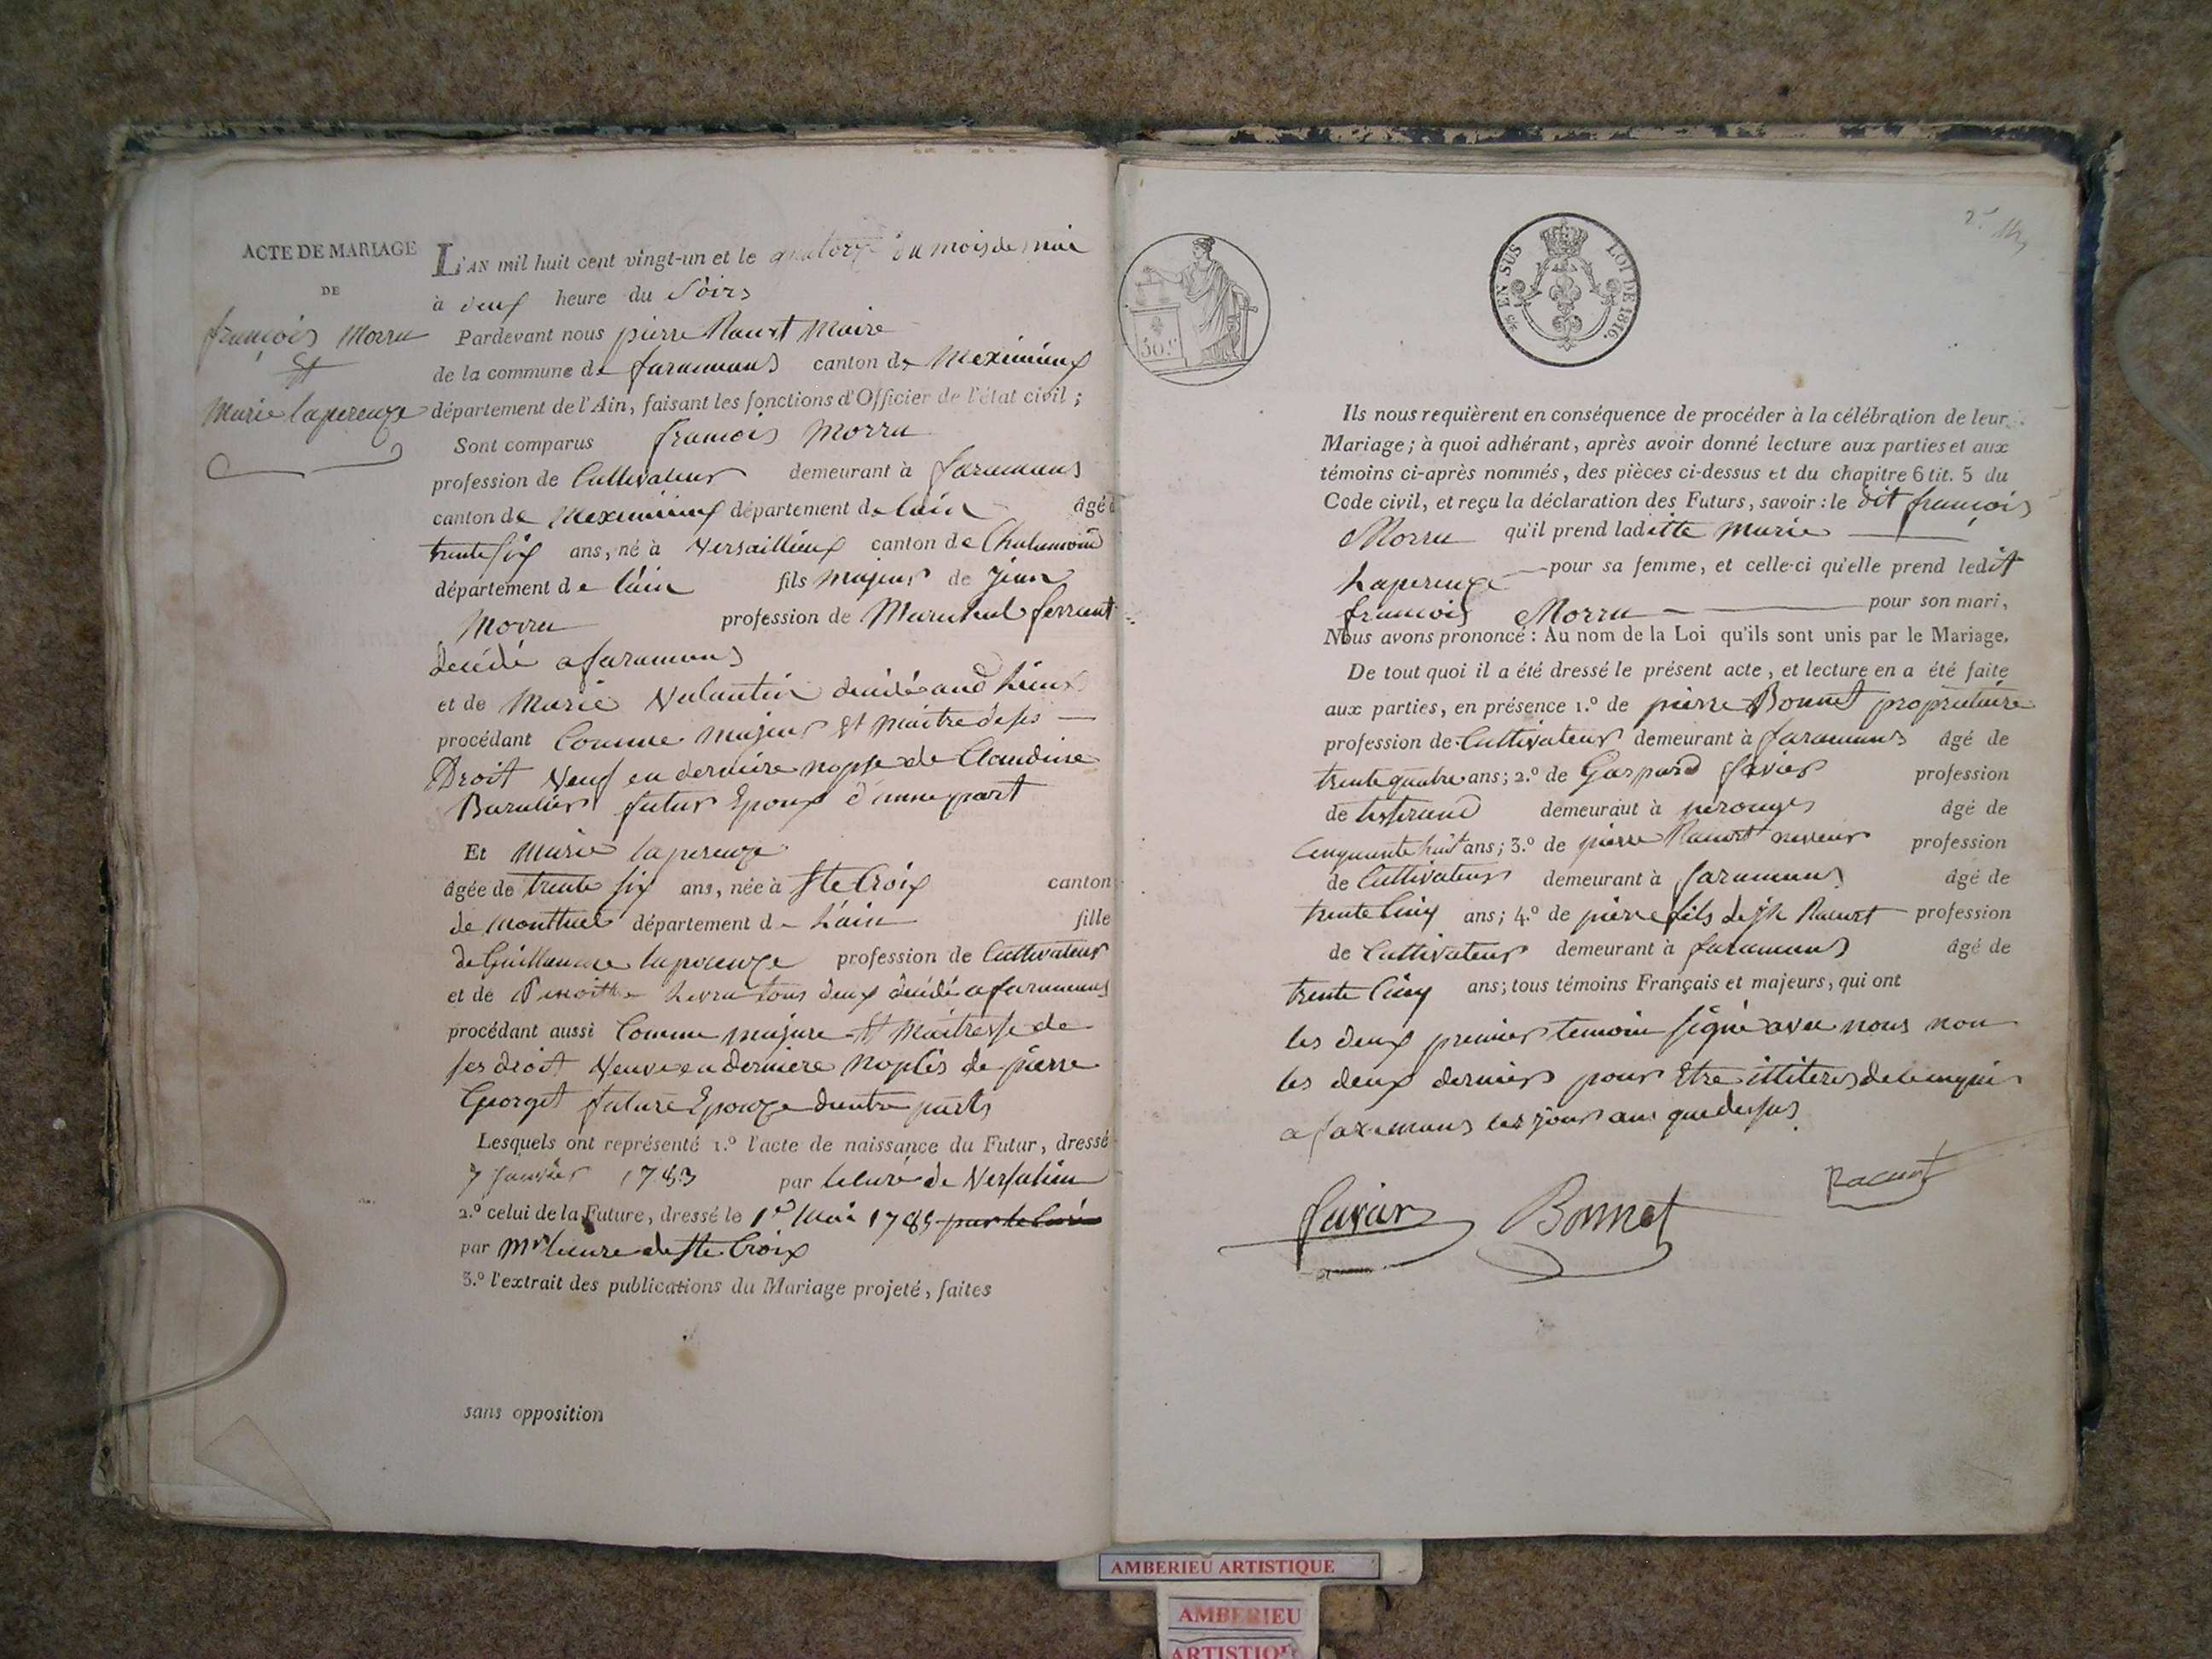 ACTE DE MARIAGE
DE
françois Morru
Et
Marie laperouze
L'AN mil huit cent vingt-un et le quatorze du mois de mai
à deux heure du Soirs
Pardevant nous pierre Racurt Maire
de la commune de faramans canton de Meximieux
département de l'Ain, faisant les fonctions d'Officier de l'état civil ;
Sont comparus francois Morru
profession de Cultivateur demeurant à faramans
canton de Meximieux département de lain âgé d
trente six ans, né à Versaillieux canton de Chalamond
département de lain fils majeur de Jean
Morru profession de Marechal ferrant
décédé a faramans
et de Marie Valantin
procédant Comme majeur Et maitre de ses
Droit Veuf en derniere nopse de Claudine
Baralier futur Epoux d'une part
Et Marie laperouze
âgée de trente six ans, née à Ste Croix canton
de Montluel département de Lain fille
de Guillaume laperouze profession de Cultivateur
et de tous deux décédé a faramans
procédant aussi Comme majure Et Maitresse de
ses droit Veuve en derniere Nopses de pierre
Georget future Epouze dautre parts
Lesquels ont représenté 1.º l'acte de naissance du Futur, dressé
7 Janvier 1783 par le curé de Versalieu
2.º celui de la Future, dressé le 1er Mai 1785 par le Curé
par Mr le cure de Ste Croix
3.º l'extrait des publications du Mariage projeté, faites
sans opposition
EN SUS LOI DE 1816.
50.c
Ils nous requièrent en conséquence de procéder à la célébration de leur
Mariage ; à quoi adhérant, après avoir donné lecture aux parties et aux
témoins ci-après nommés, des pièces ci-dessus et du chapitre 6 tit. 5 du
Code civil, et reçu la déclaration des Futurs, savoir : le dit françois
Morru qu'il prend laditte Marie
Laperouze pour sa femme, et celle-ci qu'elle prend ledit
francois Morru pour son mari,
Nous avons prononcé : Au nom de la Loi qu'ils sont unis par le Mariage.
De tout quoi il a été dressé le présent acte, et lecture en a été faite
aux parties, en présence 1.º de pierre Bonnet proprietaire
profession de Cultivateur demeurant à faramans âgé de
trente quatre ans ; 2.º de Gaspard favier profession
de tisserand demeurant à perouges âgé de
Cenquante huit ans ; 3.º de pierre Racurt neveux profession
de Cultivateur demeurant à faramans âgé de
trente Cinq ans ; 4.º de pierre fils de Racurt profession
de Cultivateur demeurant à faramans âgé de
trente Cinq ans ; tous témoins Français et majeurs, qui ont
les deux premier temoin signé avec nous non
les deux dernier pour Etre illiteres de ce enquis
a faramans les jour ans que dessus
favier Bonnet Racurt
AMBERIEU ARTISTIQUE
AMBERIEU
ARTISTIQUE